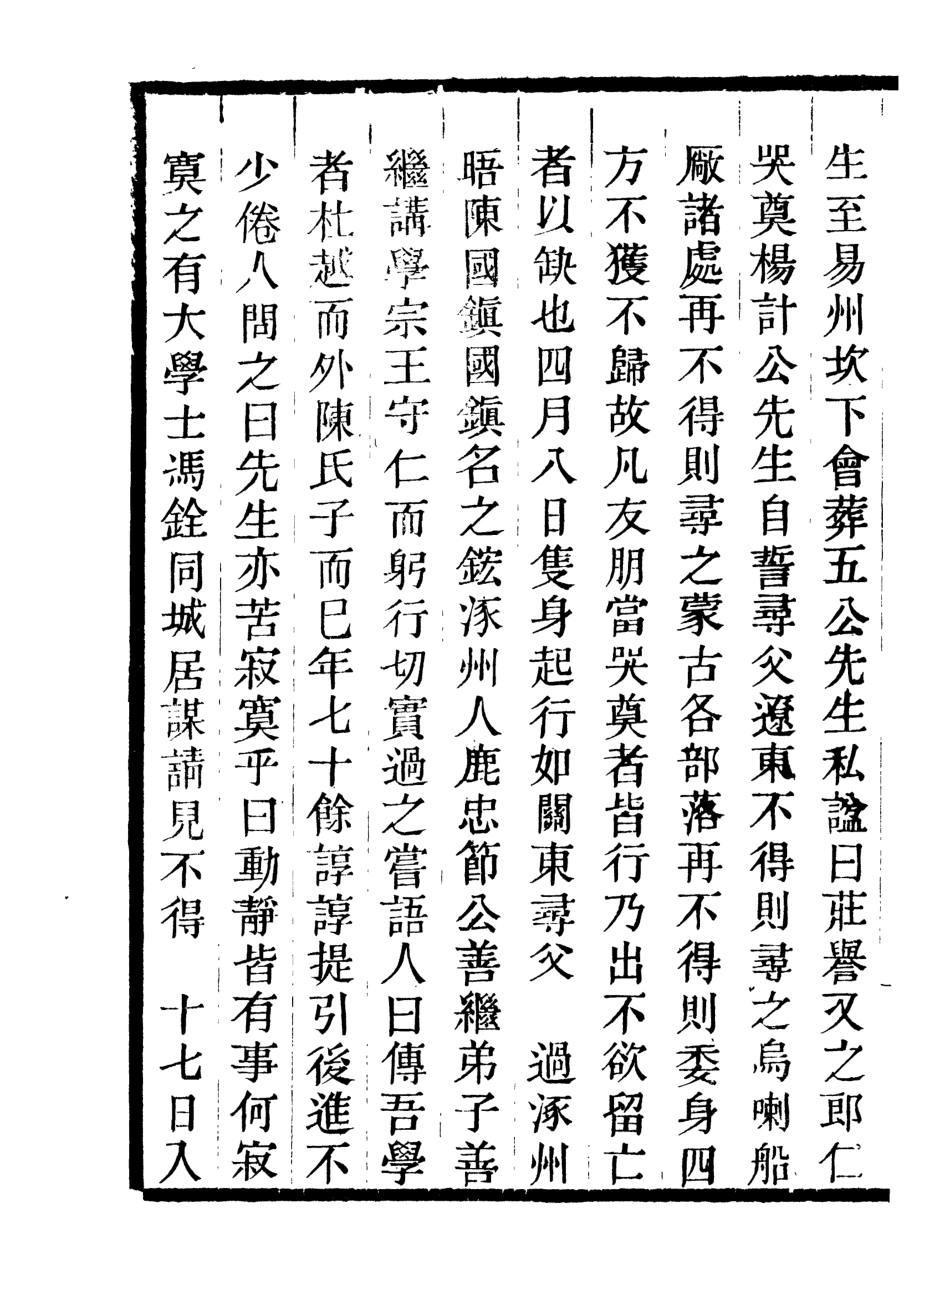 生至易州坎下會葬五公先生私謚曰莊譽又之郎仁
哭奠楊計公先生自誓尋父遼東不得則尋之烏喇船
厰諸處再不得則尋之蒙古各部落再不得則委身四
方不獲不歸故凡友朋當哭奠者皆行乃出不欲留亡
者以缺也四月八日隻身起行如關東尋父　過涿州
晤陳國鎭國鎭名之鋐涿州人鹿忠節公善繼弟子善
繼講學宗王守仁而躬行切實過之嘗語人曰傳吾學
者杜越而外陳氏子而已年七十餘諄諄提引後進不
少倦人問之曰先生亦苦寂寞乎曰動靜皆有事何寂
寞之有大學士馮銓同城居謀請見不得　十七日入